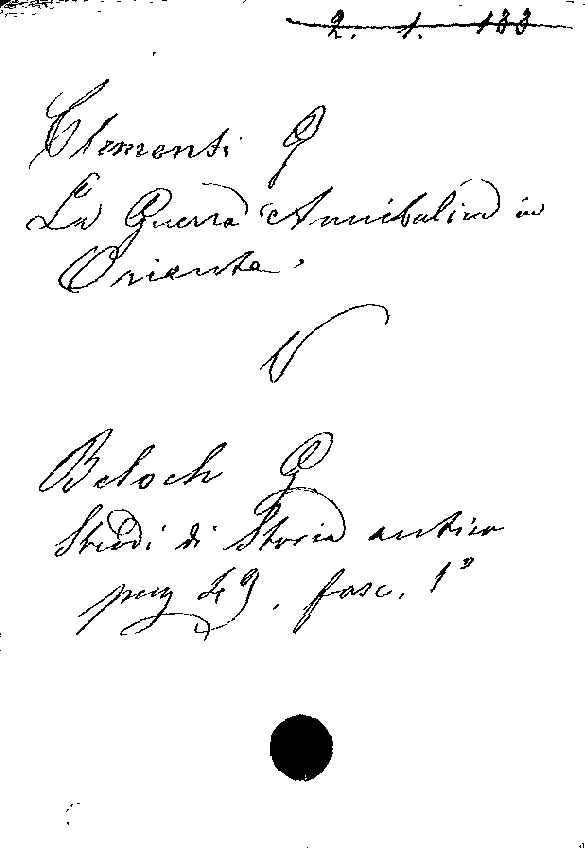 2. 1. 133
Clementi G
La Guerra Annibalica in
Oriente.
V
Beloch G
Studi di Storia antica
pag 49. fasc. 1º